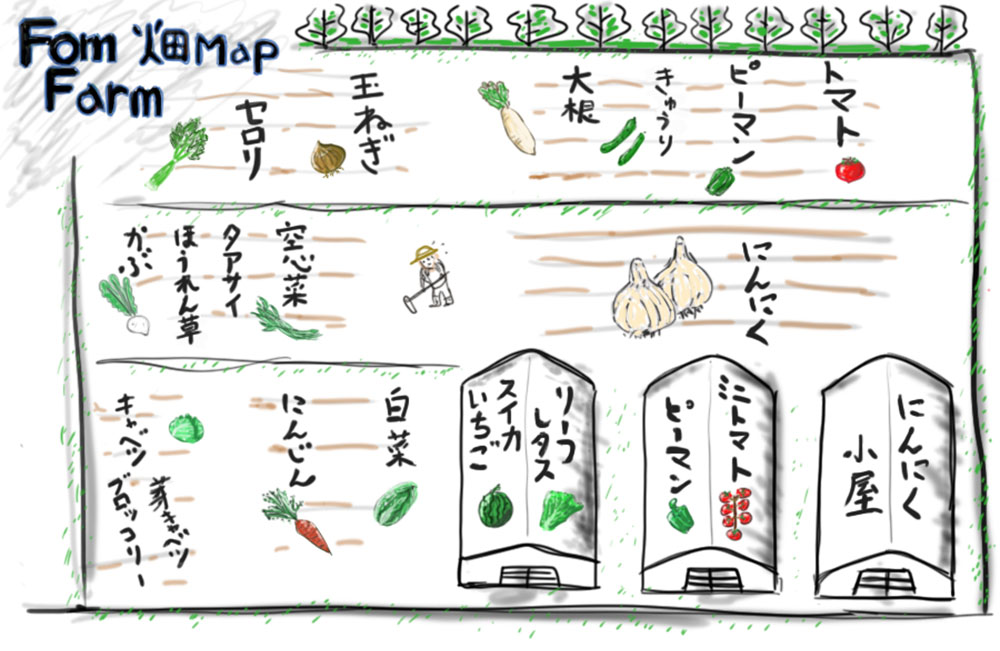 Fom 畑 Map
Farm
トマト
ピーマン
きゅうり
大根
玉ねぎ
セロリ
にんにく
空心菜
タアサイ
ほうれん草
かぶ
にんにく
小屋
ミニトマト
ピーマン
リーフ
レタス
スイカ
いちご
白菜
にんじん
キャベツ
芽キャベツ
ブロッコリー